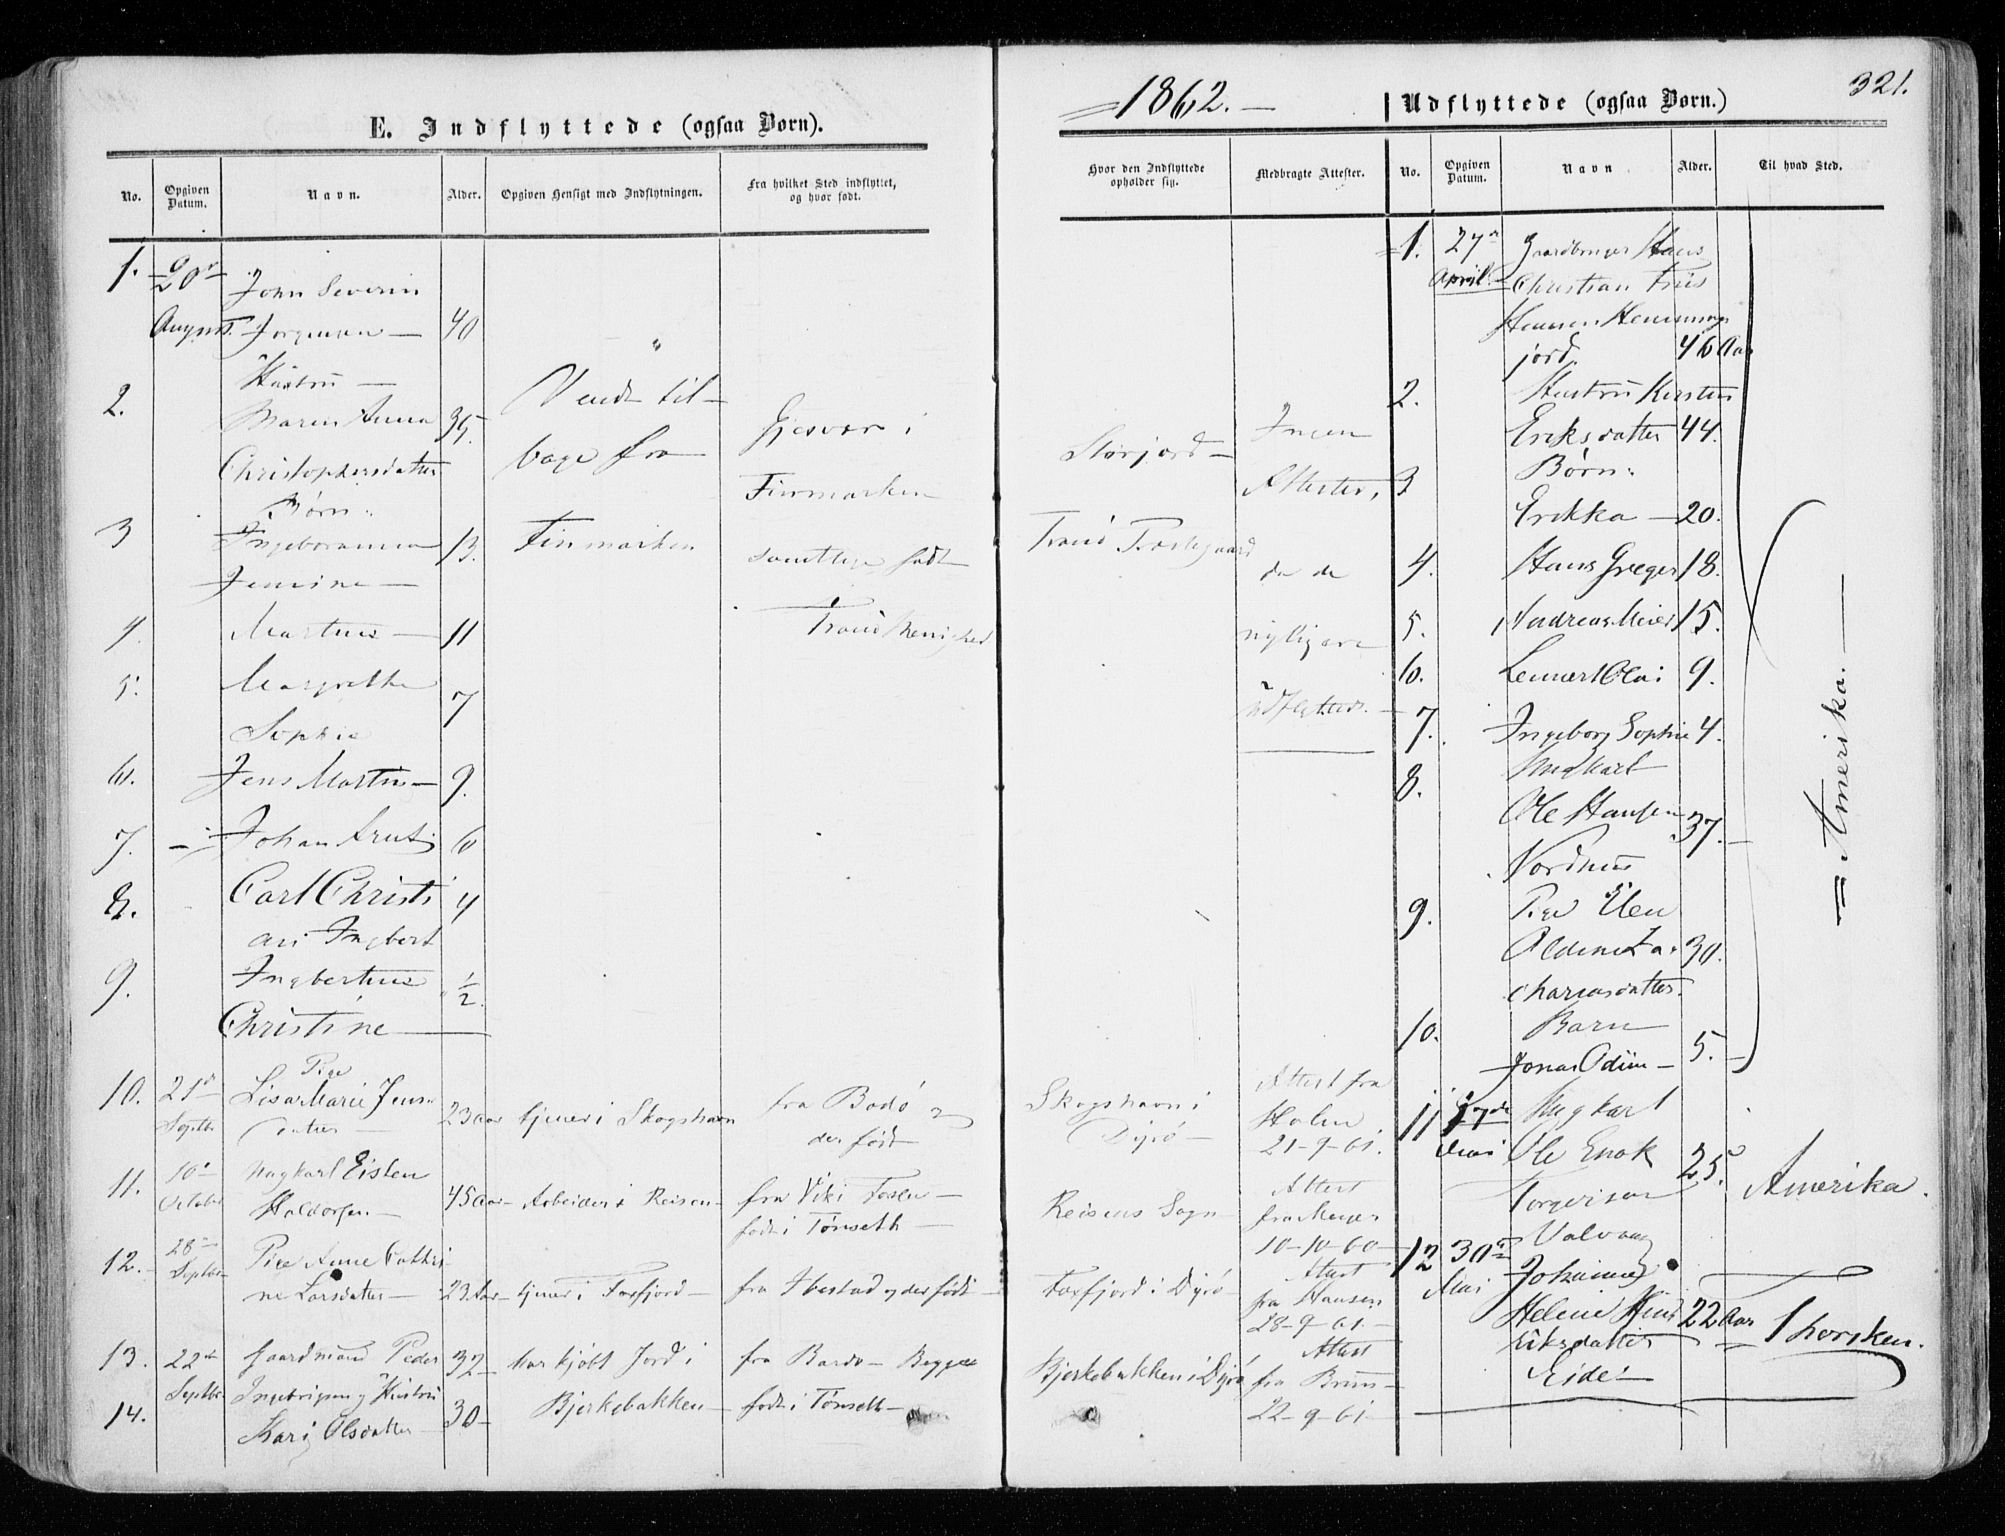 1862.
321.
E. Indflyttede (ogsaa Børn).
Udflyttede (ogsaa Børn.)
No.
Opgiven Datum.
Navn.
Alder.
Opgiven Hensigt med Indflytningen.
Fra hvilket Sted indflyttet, og hvor født.
Hvor den Indflyttede opholder sig.
Medbragte Attester.
No.
Opgiven Datum.
Navn.
Alder.
Til hvad Sted.
1.
20
August
John Severin
Jørgensen
40
"
2.
Hustru
Maren Anna
35.
Christophersdatter
Vendt til-
bage fra
Finmarken
Gjesvær i
Finmarken
samtlige født
Tranø
Storjord
Tranø Præstegaard
Ingen
Attester,
da de
nyligere
udflyttede.
Børn:
3
13.
4.
Martinus
11
5.
Margrethe
Sophie
7
6.
Jens Martin
9.
7.
Johan Arnt
6
8.
Carl Christi
an Ingbert
4
9.
Ingbertine
Christine
½.
10.
21
Septbr
Pige
Lisa Marie Jens
datter
23 aar
tjener i Skogshavn
fra Bodø
der født
Skogshavn i
Dyrø
Attest fra
Holm
21-9-61.
11.
10
October
Ungkarl Eisten
Haldorsen
45 aar
Arbeider i Reisen
fra Viki Fosen
født i Tønseth
Reisens Sogn
Attest
fra
10-10-60
12.
28
Septbr
Pige Anne Cathri
ne Larsdatter
23 Aar
tjener i Faxfjord
fra Ibestad og der født
Faxfjord i Dyrø
Attest
fra Hansen
28-9-61
13.
22
Septbr
Gaardmand Peder
32
har kjøbt Jord i
fra Bardo - Begge
Bjerkebakken i Dyrø
Attest
fra Bruun
22-9-61
14.
Hustru
Kari Olsdatter
30
Bjerkebakken
født i Tønseth
1.
27
April
Gaardbruger Hans
Christian Friis
Hensen Hemmings
jord
46 Aar
2.
Hustru Kirsten
Eriksdatter
44.
3
Børn:
Erikka
20.
4.
Hans Greger
18.
5.
Andreas Meier
15.
6.
Lennert Olai
9.
7.
Ingeborg Sophie
4.
8.
Ungkarl
Ole Hansen
37.
Nordnes
9.
Pige Elen
Aldine Za
30.
chariasdatter.
10.
Barn
Jonas Odin
5.
Amerika.
11
17de
Mai
Ungkarl
Ole Enok
25.
Torgersen
Valvaag
Amerika.
12
30
Mai
Johanna
Helene Hend
22 Aar
riksdatter
Eide
Thorsken.